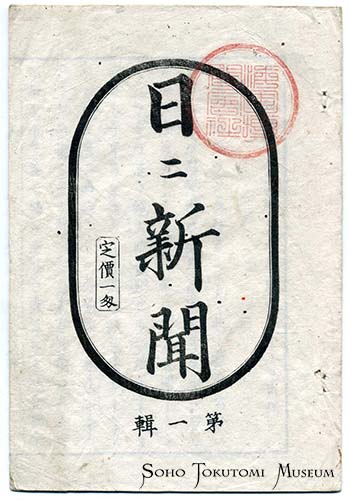 日二新聞
定價一匁
第一輯
Soho Tokutomi Museum